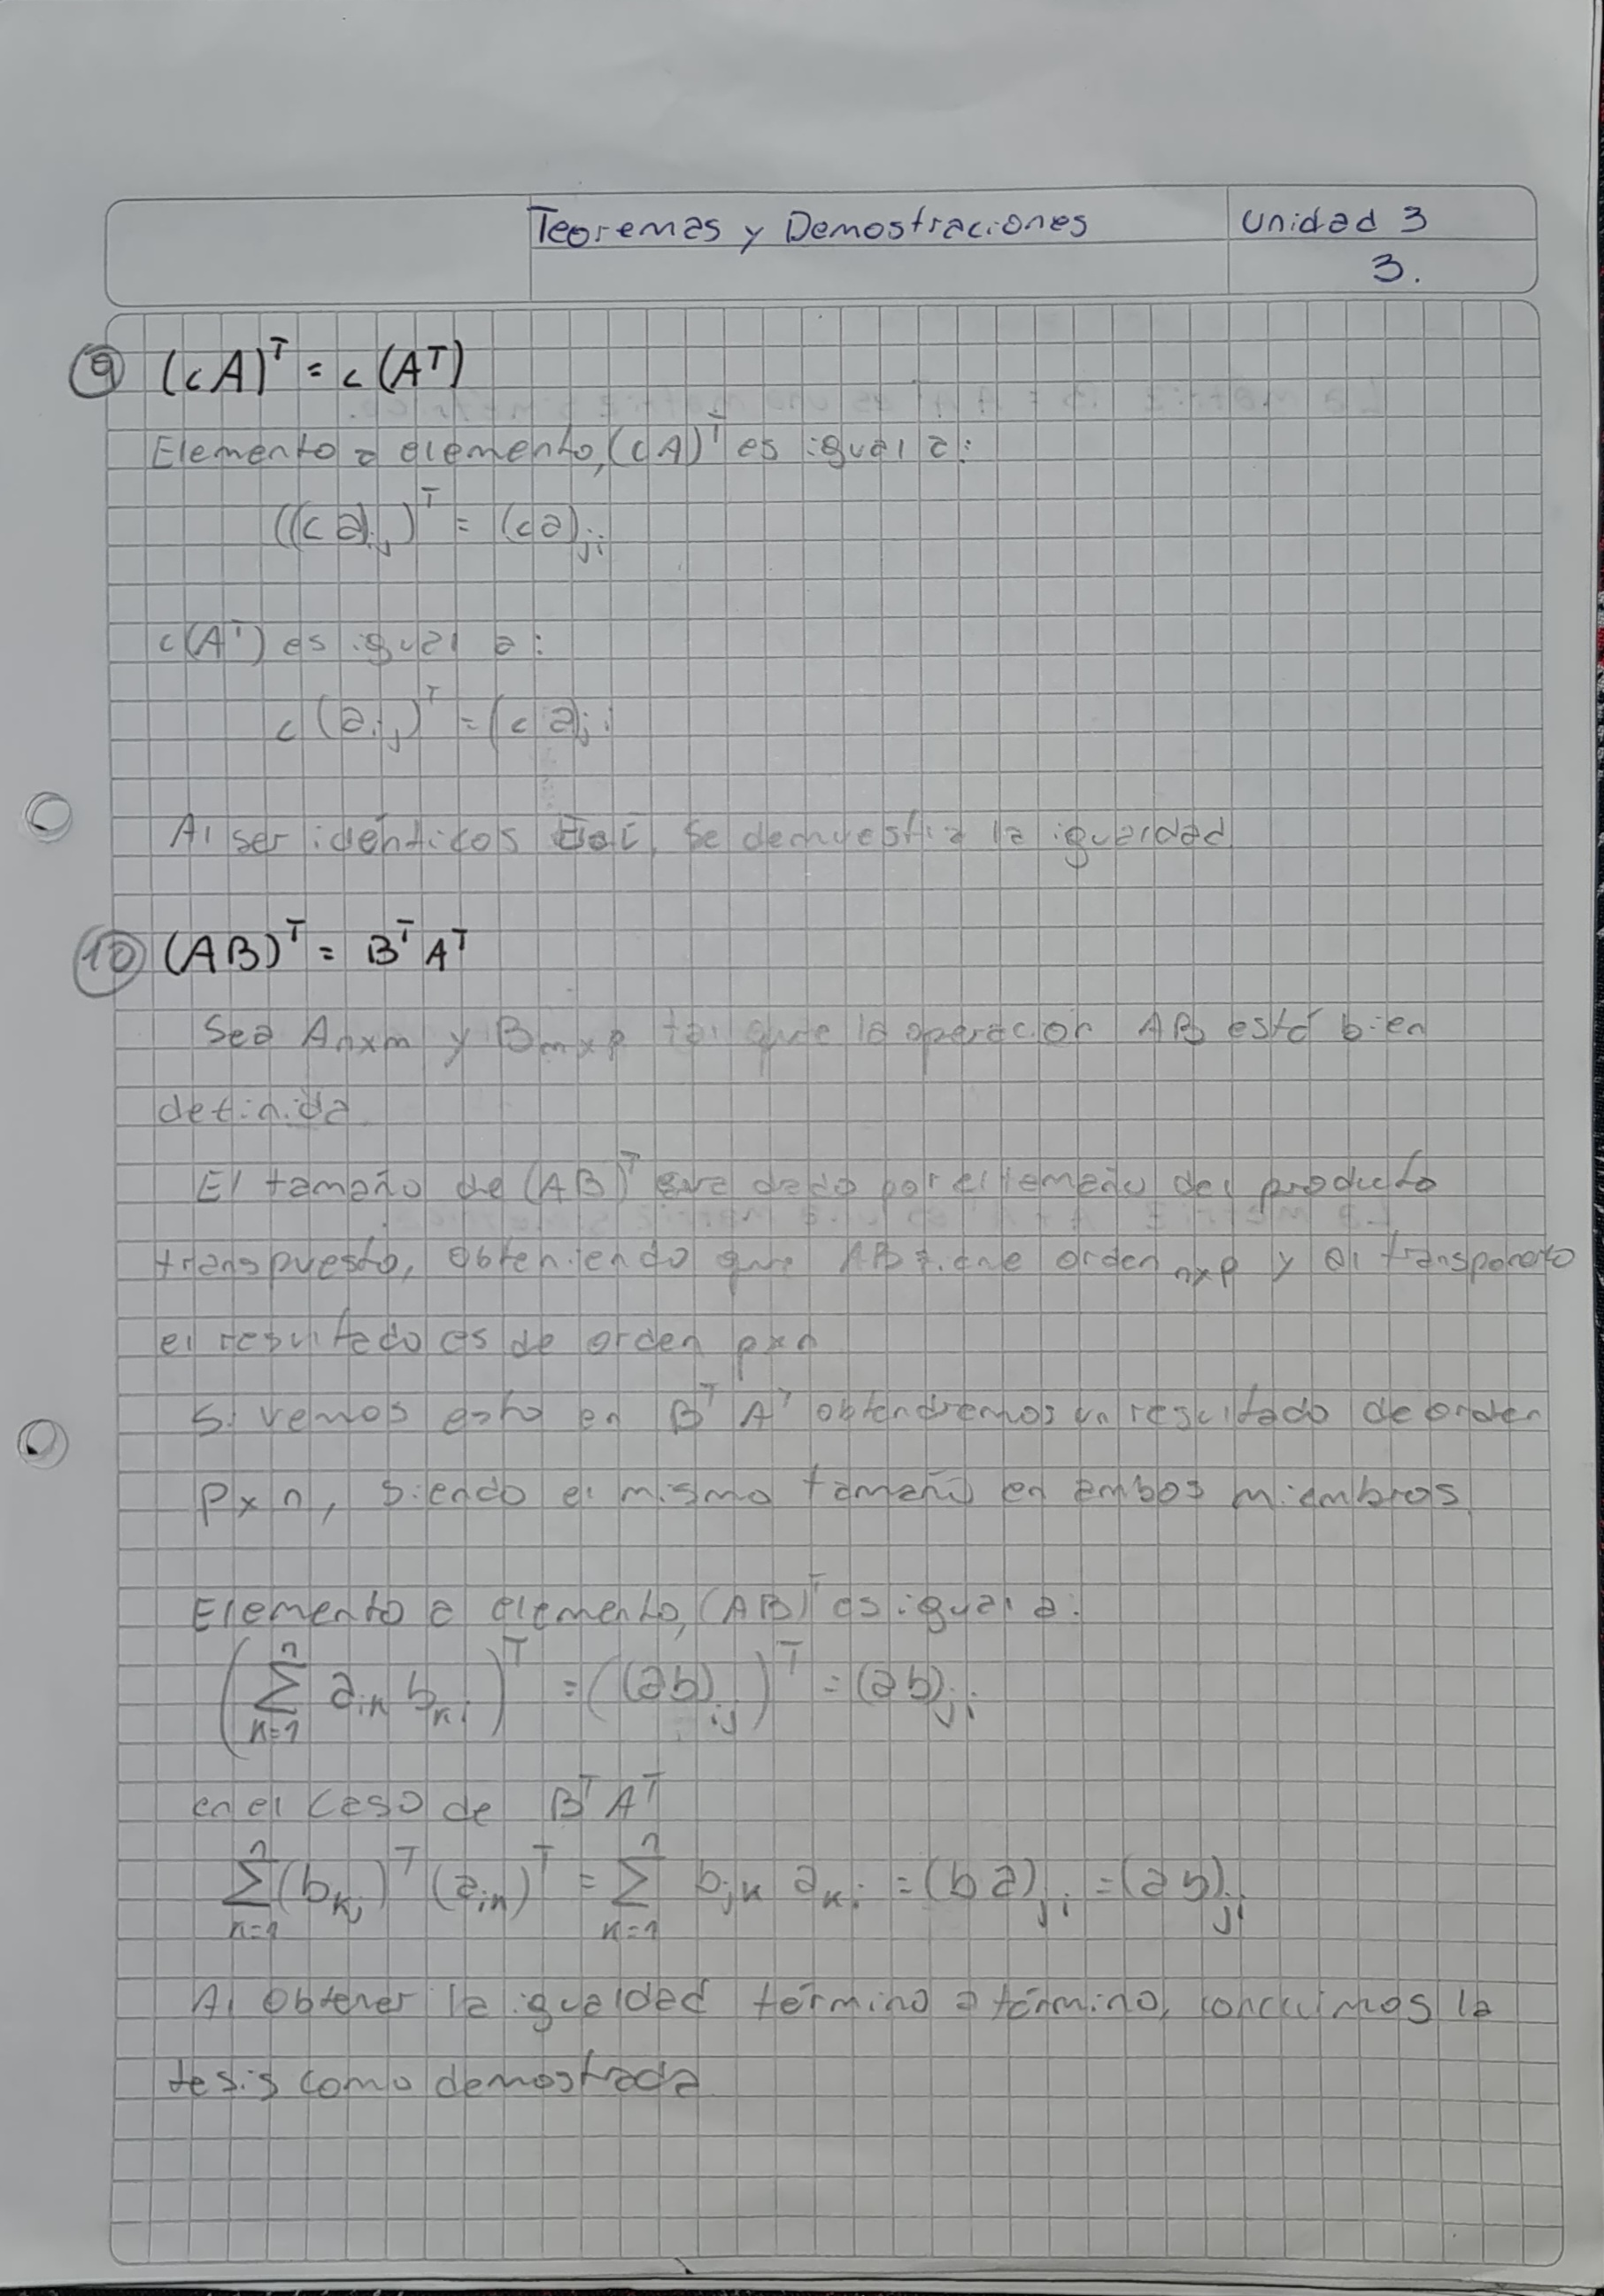 Teoremas y Demostraciones
Unidad 3
3.
9 (cA)ᵀ = c(Aᵀ)
Elemento a elemento, (cA)ᵀ es igual a:
((ca)ᵢⱼ)ᵀ = (ca)ⱼᵢ
c(Aᵀ) es igual a:
c(aᵢⱼ)ᵀ = (ca)ⱼᵢ
Al ser idénticos, se demuestra la igualdad
10 (AB)ᵀ = Bᵀ Aᵀ
Sea Aₙₓₘ y Bₘₓₚ tal que la operación AB esté bien
definida
El tamaño de (AB)ᵀ dado por el tamaño del producto
transpuesto, obteniendo que AB tiene orden ₙₓₚ y al transponerlo
el resultado es de orden pxn
Si vemos esto en Bᵀ Aᵀ obtendremos un resultado de orden
pxn, siendo el mismo tamaño en ambos miembros
Elemento a elemento, (AB)ᵀ es igual a:
(∑ₖ₌₁ⁿ aᵢₖ bₖⱼ)ᵀ = ((ab)ᵢⱼ)ᵀ = (ab)ⱼᵢ
en el caso de Bᵀ Aᵀ
∑ₖ₌₁ⁿ (bₖⱼ)ᵀ (aᵢₖ)ᵀ = ∑ₖ₌₁ⁿ bⱼₖ aₖᵢ = (ba)ⱼᵢ = (ab)ⱼᵢ
Al obtener la igualdad término a término, concluimos la
tesis como demostrada